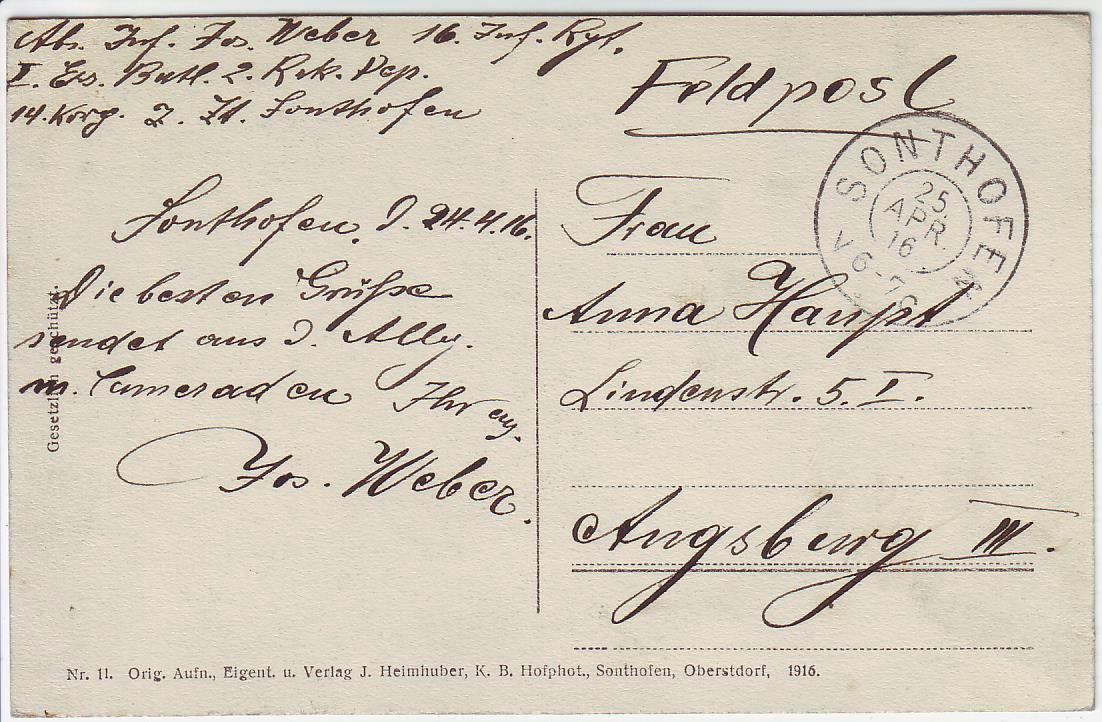 Abs. Inf. Jos. Weber 16. Inf. Rgt.
I. Ers. Batl. 2. Rek. Dep.
14. Korg. Z. Zt. Sonthofen
Feldpost
SONTHOFEN
25
APR.
16
V 6-7
Sonthofen, d. 24.4.16.
Die besten Grüße
sendet aus d. Allg.
m. Cameraden Ihr erg.
Jos. Weber.
Frau
Anna Haupt
Lindenstr. 5. I.
Augsburg III.
Gesetzlich geschützt.
Nr. 11. Orig. Aufn., Eigent. u. Verlag J. Heimhuber, K. B. Hofphot., Sonthofen, Oberstdorf, 1916.